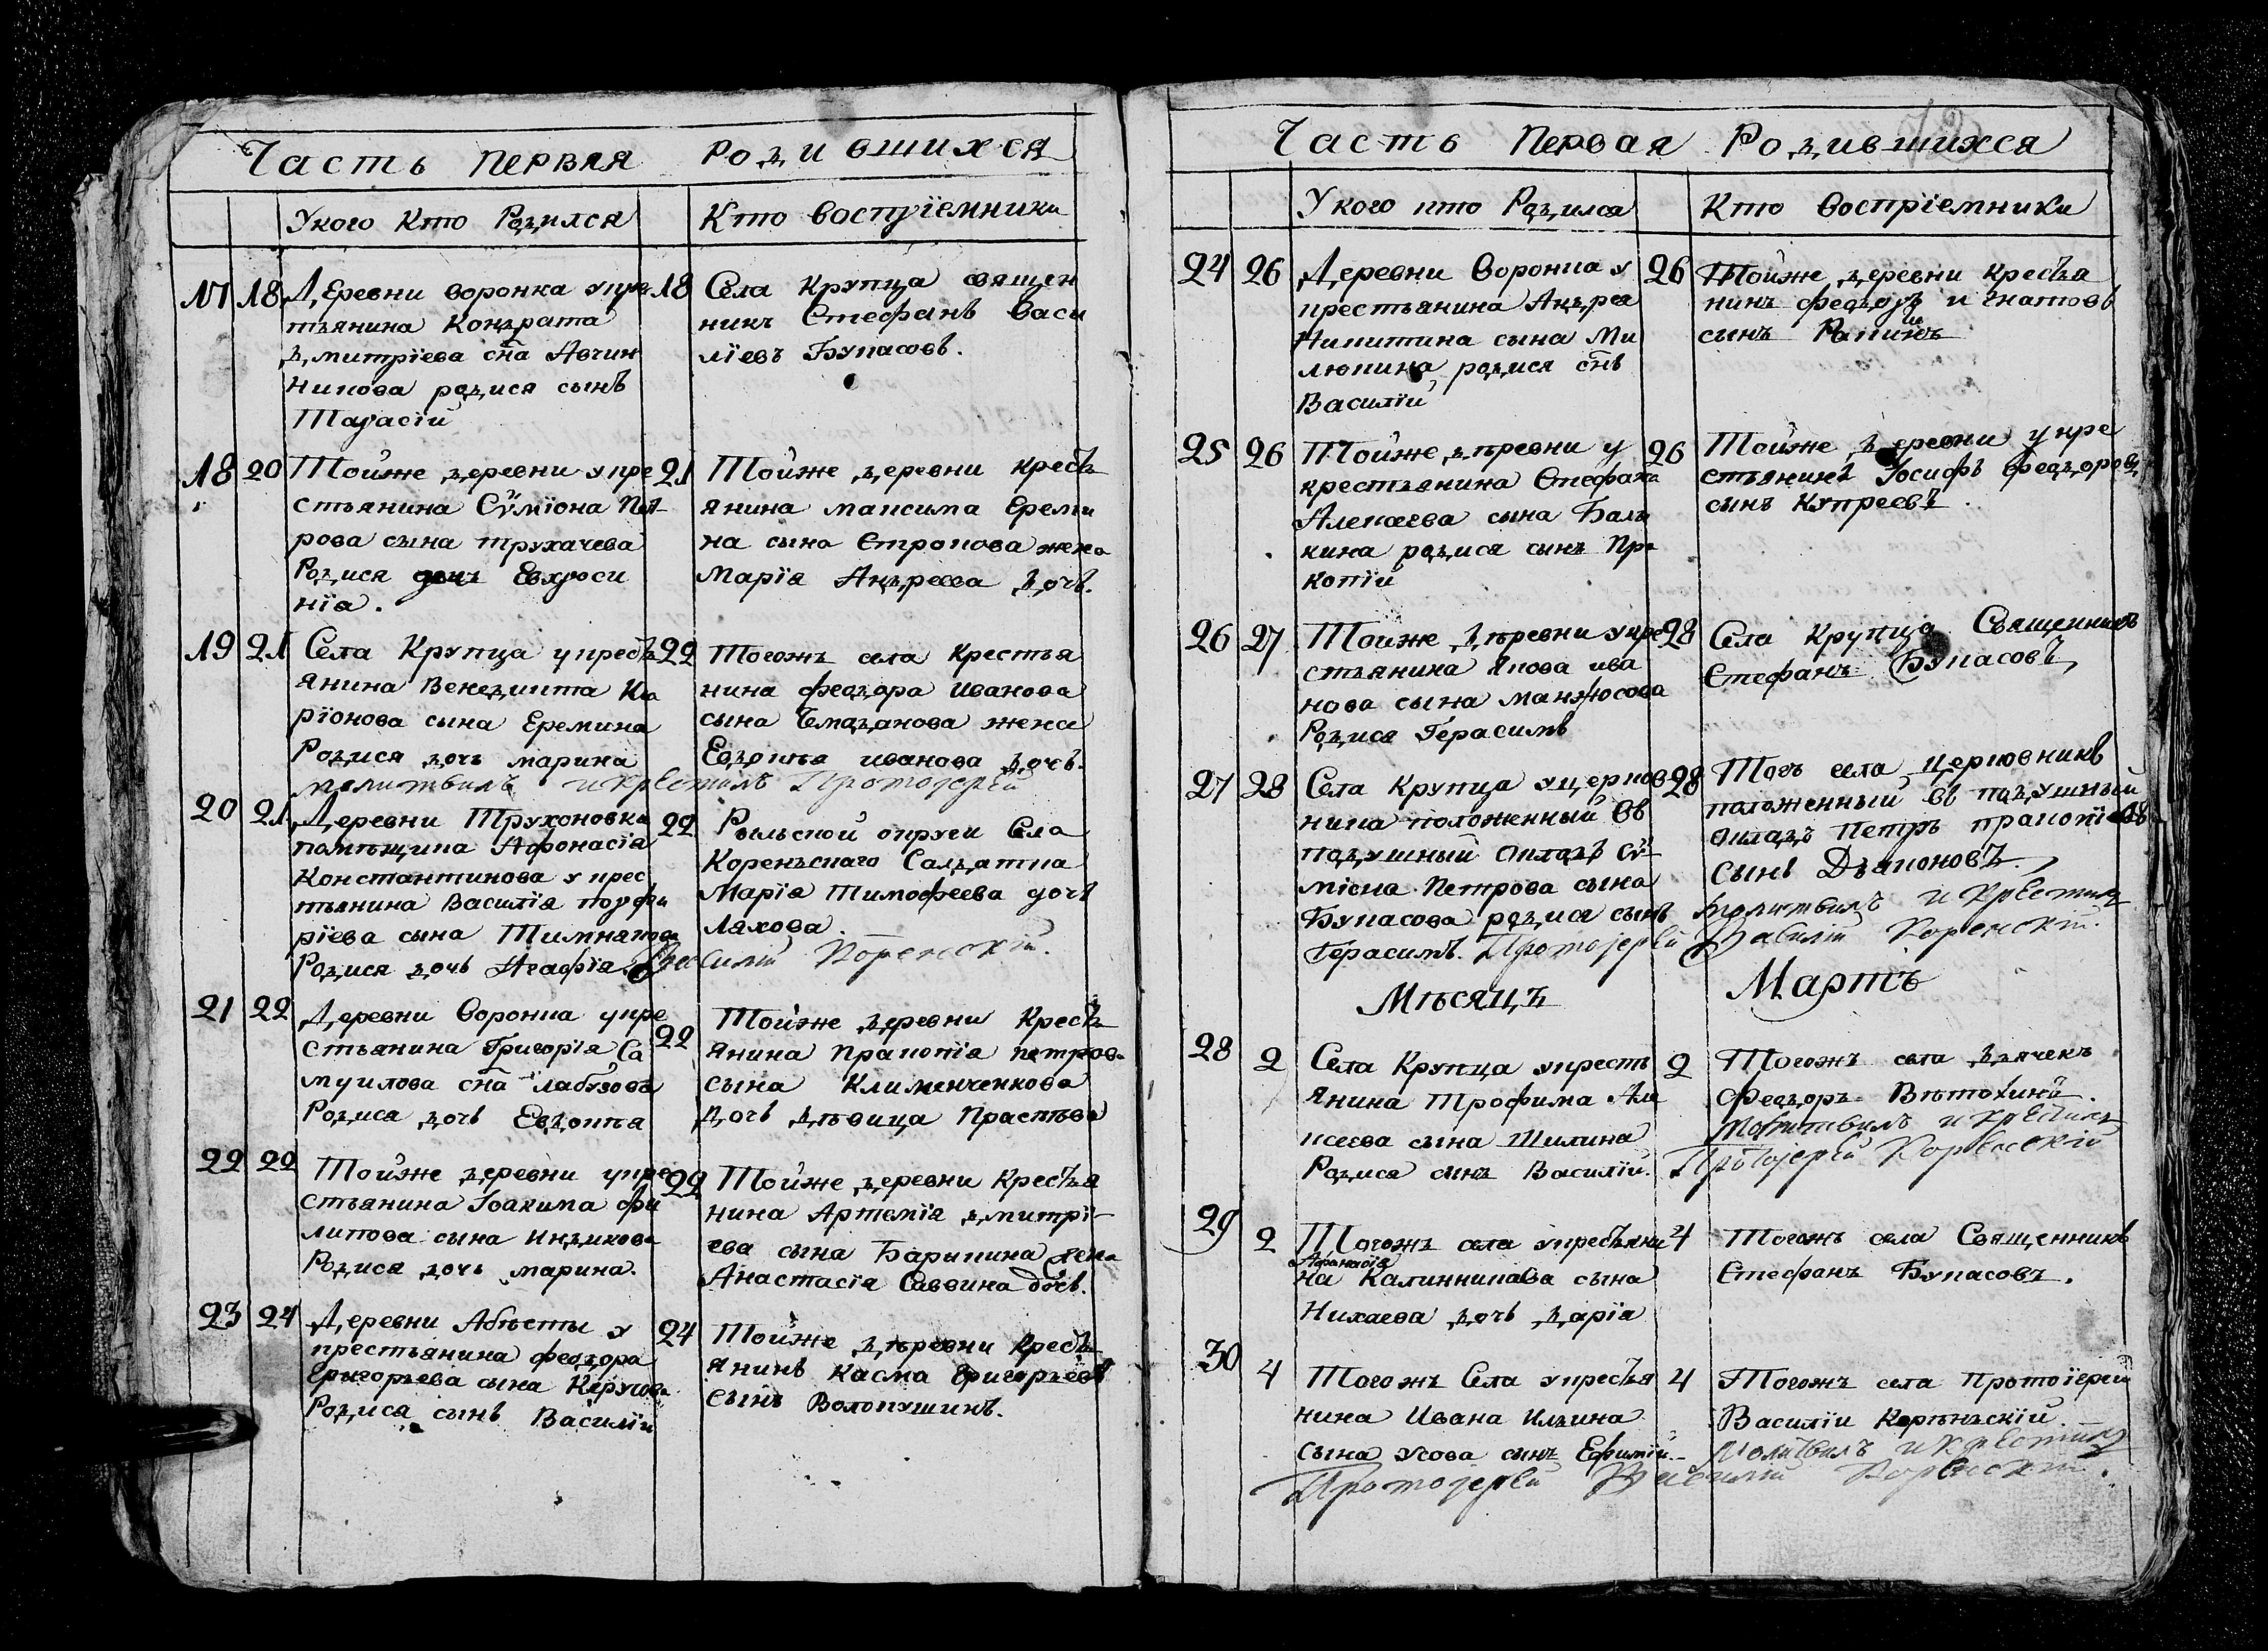 Часть первая Родившихся
У кого кто Родился
Кто восприемники
17 18 Деревни воронка у кре
стьянина Кондрата
Дмитріева сна Авчин
никова родися сынъ
Тарасій
18 Села Крупца священ
никъ Стефанъ Васи
ліевъ Букасовъ.
18 20 Тойже деревни укре
стьянина Сѵміона Пет
рова сына трухачева
Родися дочь Евхроси
нія.
21 Тойже деревни кресть
янина максима Ереми
на сына Строкова жена
Марія Андреева дочь.
19 21 Села Крупца укресть
янина Венедикта Ка
ріонова сына Еремина
Родися дочь марина
22 Тогожъ села Крестья
нина феодора Иванова
сына Чемоданова жена
Евдокѣа иванова дочь.
молитвилъ и крестилъ Протоіерей
20 21 Деревни Трухоновки
помѣщика Афонасія
Константинова у крес
тьянина Василія порфи
ріева сына Тимнякова
Родися дочь Агафія.
22 Рыльской округи Села
Коренскаго Салдатка
Марія Тимофеева дочь
Ляхова.
Василій Коренскій.
21 22 Деревни Воронка укре
стьянина Григорія Са
муилова сна лабузова
Родися дочь Евдокѣа
22 Тойже деревни Кресть
янина Прокопія петрова
сына Клименченкова
дочь дѣвица Прасковѣа
22 22 Тойже деревни укре
стьянина Іоакима фи
липова сына Индикова
Родися дочь марина.
22 Тойже деревни Крестья
нина Артемія дмитрі
ева сына Барыкина жена
Анастасія Саввина дочь.
23 24 Деревни Абѣсты у
крестьянина феодора
Григорьева сына Керусова
Родися сынъ Василій
24 Тойже дѣревни кресть
янинъ Касма Григорьевъ
сынъ Волокушинъ.
Часть Первая Родившихся
У кого кто Родился
Кто восприемники
24 26 Деревни Воронка у
крестьянина Андрея
Никитина сына Ми
люкина родися снъ
Василій
26 Тойже деревни крестья
нинъ феодоръ игнатовъ
сынъ
25 26 Тойже дѣревни у
крестьянина Стефана
Алексеева сына Балы
кина родися сынъ Про
копій
26 Тойже деревни у кре
стьянинъ Іосифъ Феодоровъ
сынъ Купреевъ.
26 27 Тойже дѣревни укре
стьянина Якова ива
нова сына манжосова
Родися Герасимъ
28 Села Крупца Священникъ
Стефанъ Букасовъ,
27 28 Села Крупца уцерков
ника положенный въ
подушный окладъ Сѵ
міона Петрова сына
Букасова родися сынъ
Герасимъ.
28 Тогъ села церковникъ
положенный въ подушный
окладъ петръ прокопіевъ
сынъ Дьяконовъ.
молитвилъ и крестилъ
Протоіерей Василій Коренскій.
Мѣсяцъ Мартъ
28 2 Села Крупца укресть
янина Трофима Але
ксеева сына Шилина
Родися сынъ Василій.
2 Тогожъ села дьячекъ
Феодоръ Вѣтохинъ.
Молитвилъ и крестилъ
Протоіерей Коренскій
29 2 Тогожъ села укрестьяни
Афанасія
на Калинникава сына
Нихаева дочь дарія
4 Тогожъ села Священникъ
Стефанъ Букасовъ.
30 4 Тогожъ Села укрестья
нина Ивана Ильина
сына усова сынъ Ефимій.
4 Тогожъ села Протоіерей
Василій Корѣньскій.
Молитвилъ и крестилъ
Протоіерей Василій Коренскій.